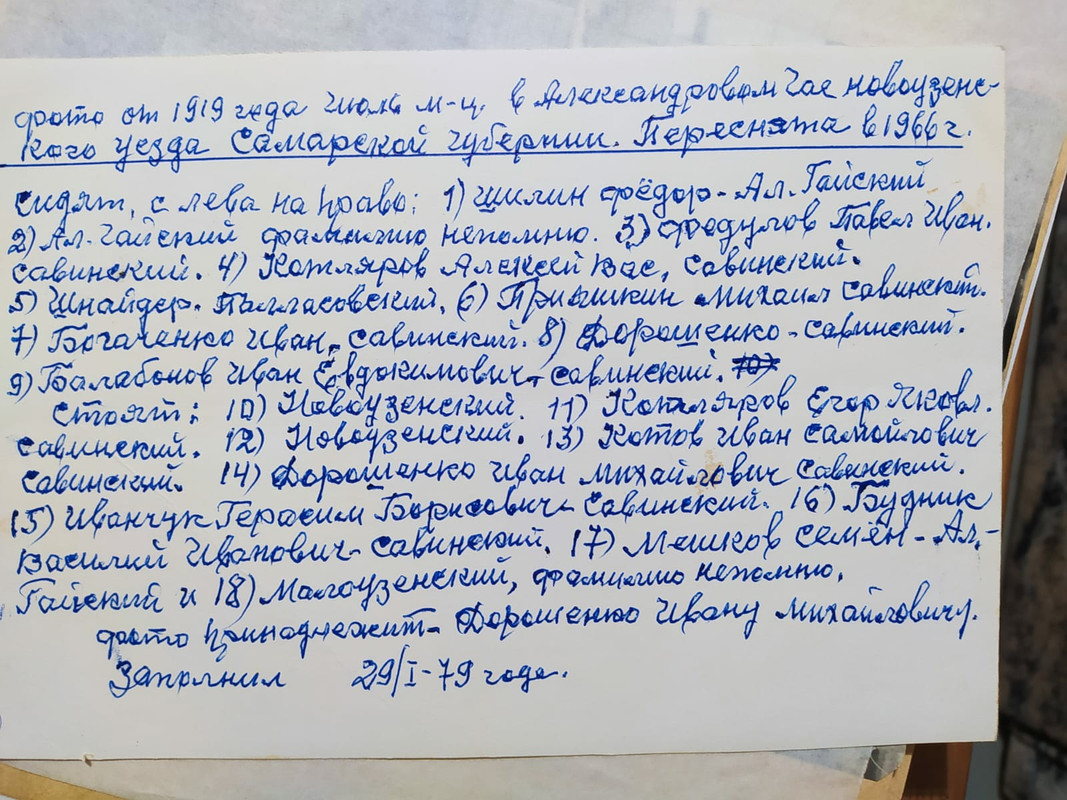 фото от 1919 года июль м-ц. в Александровом Гае новоузенс-
кого уезда Самарской губернии. Переснята в 1966 г.
сидят, с лева на право: 1) Шилин фёдор - Ал. Гайский
2) Ал. Гайский фамилию непомню. 3) Федулов Павел Иван.
савинский. 4) Котляров Алексей Вас, савинский.
5) Шнайдер. Палласовский. 6) Пришкин михаил савинский.
7) Богаченко Иван, савинский. 8) Дорошенко - савинский.
9) Балабонов иван Евдокимович - савинский. 10)
стоят: 10) Новоузенский. 11) Котляров Егор Яковл.
савинский. 12) Новоузенский. 13) Котов Иван самойлович
савинский. 14) Дорошенко иван михайлович савинский.
15) Иванчук Герасим Борисович - савинский. 16) Будник
василий Иванович - савинский. 17) Мешков семён - Ал,-
Гайский и 18) Малоузенский, фамилию непомню.
фото приноднежит - Дорошенко Ивану михайловичу.
Заполнил 29/I-79 года.